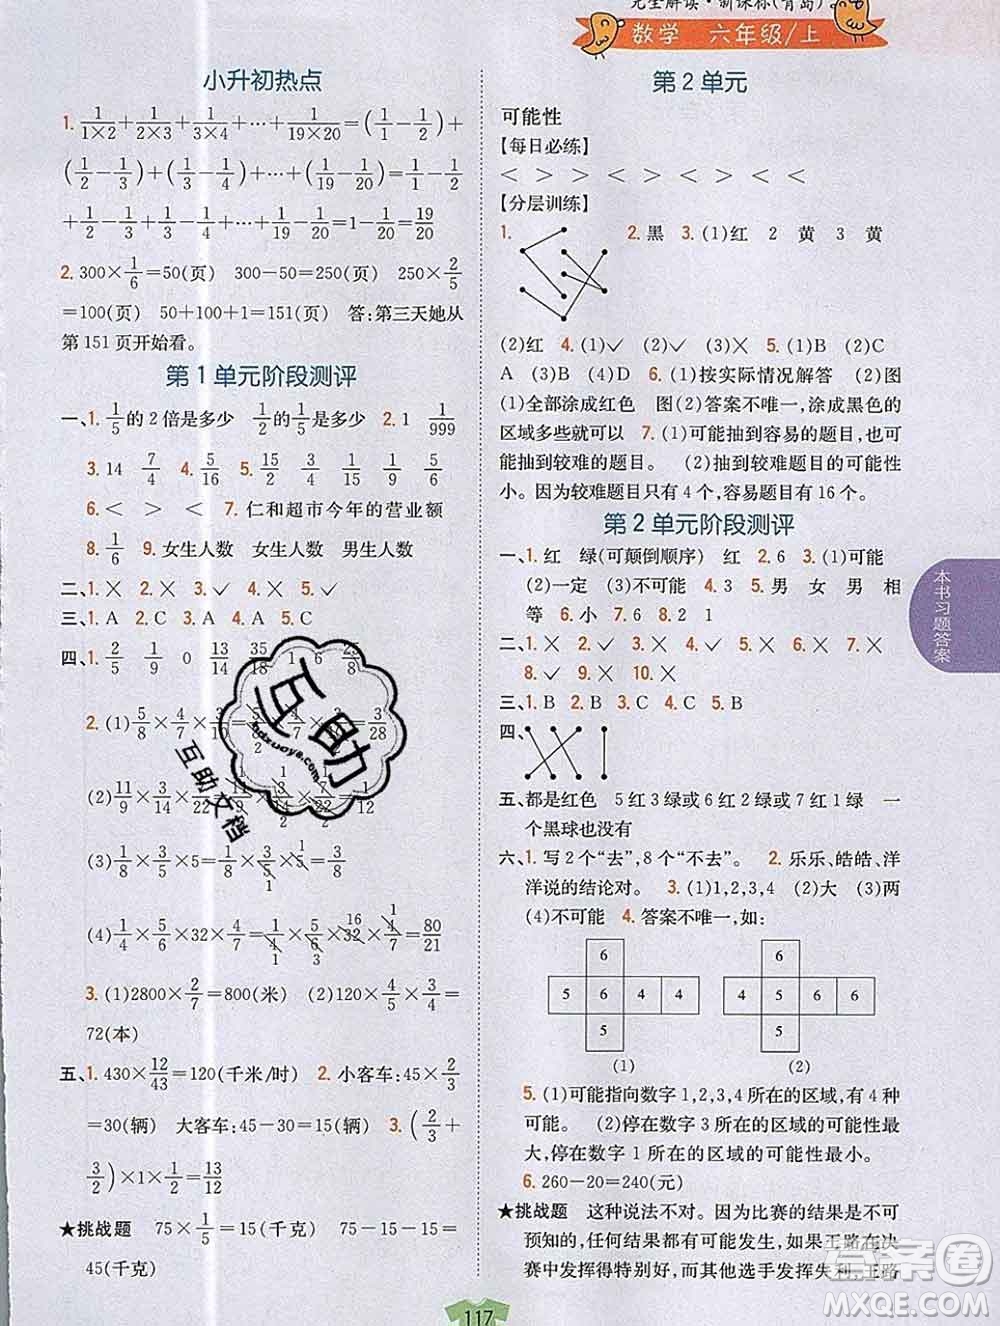 完全解读·新课标(青岛)
数学 六年级/上
小升初热点
1. 1/(1×2)+1/(2×3)+1/(3×4)+…+1/(19×20)=(1/1-1/2)+
(1/2-1/3)+(1/3-1/4)+…+(1/19-1/20)=1/1-1/2
+1/2-1/3+1/3-1/4+…+1/19-1/20=1-1/20=19/20
2. 300×1/6=50(页) 300-50=250(页) 250×2/5
=100(页) 50+100+1=151(页) 答:第三天她从
第 151 页开始看。
第 1 单元阶段测评
一、1. 1/5的 2 倍是多少 1/2的1/5是多少 2. 1 1/999
3. 14 7/4 4. 5/16 5. 15/2 2/5 3/4
6. < > < 7. 仁和超市今年的营业额
8. 1/6 9. 女生人数 女生人数 男生人数
二、1. × 2. × 3. × 4. × 5. ✓
三、1. A 2. C 3. A 4. A 5.
四、1. 2/5 1/9 0 33/14 1 6 25/8
2. (1)5/8×4/7×
=3/28
(2)11/9×3/24×
(3)1/8×3/5×5=1/8×3/5×5=3/8
(4)1/4×5/3×32×4/7=1/4×5/3×32×4/7=80/21
3. (1)2800×2/7=800(米) (2)120×4/5×3/4=
72(本)
五、1. 430×12/43=120(千米/时) 2. 小客车:45×2/3
=30(辆) 大客车:45-30=15(辆) 3. (2/3+
3/2)×1×1/2=13/12
★挑战题 75×1/5=15(千克) 75-15-15=
45(千克)
第 2 单元
可能性
【每日必练】
< > > < > < > > < <
【分层训练】
1. 2. 黑 3. (1)红 2 黄 3 黄
(2)红 4. (1)✓ (2)✓ (3)× 5. (1)B (2)C
A (3)B 6. (1)按实际情况解答 (2)图
(1)全部涂成红色 图(2)答案不唯一,涂成黑色的
区域多些就可以 7. (1)可能抽到容易的题目,也可
能抽到较难的题目。 (2)抽到较难题目的可能性
小。因为较难题目只有 4 个,容易题目有 16 个。
第 2 单元阶段测评
一、1. 红 绿(可颠倒顺序) 红 2. 6 3. (1)可能
(2)一定 (3)不可能 4. 3 5. 男 女 男 相
等 6. 小 7. 6 8. 2 1
二、1. × 2. × 3. × 4. ✓ 5. × 6. × 7. ×
8. ✓ 9. × 10. ×
三、1. B 2. B 3. C 4. C 5. B
四、
五、都是红色 5 红 3 绿或 6 红 2 绿或 7 红 1 绿 一
个黑球也没有
六、1. 写 2 个“去”,8 个“不去”。 2. 乐乐、皓皓、洋
洋说的结论对。 3. (1)1,2,3,4 (2)大 (3)两
(4)不可能 4. 答案不唯一,如:
6 6
5 6 4 4 4 5 6 6
5 5
(1) (2)
5. (1)可能指向数字 1,2,3,4 所在的区域,有 4 种
可能。 (2)停在数字 3 所在的区域的可能性最
大,停在数字 1 所在的区域的可能性最小。
6. 260-20=240(元)
★挑战题 这种说法不对。因为比赛的结果是不可
预知的,任何结果都有可能发生,如果王路在决
赛中发挥得特别好,而其他选手发挥失利,王路
本书习题答案
117
互助
hdzuoye.com
互助文档
答案圈
MXQE.COM